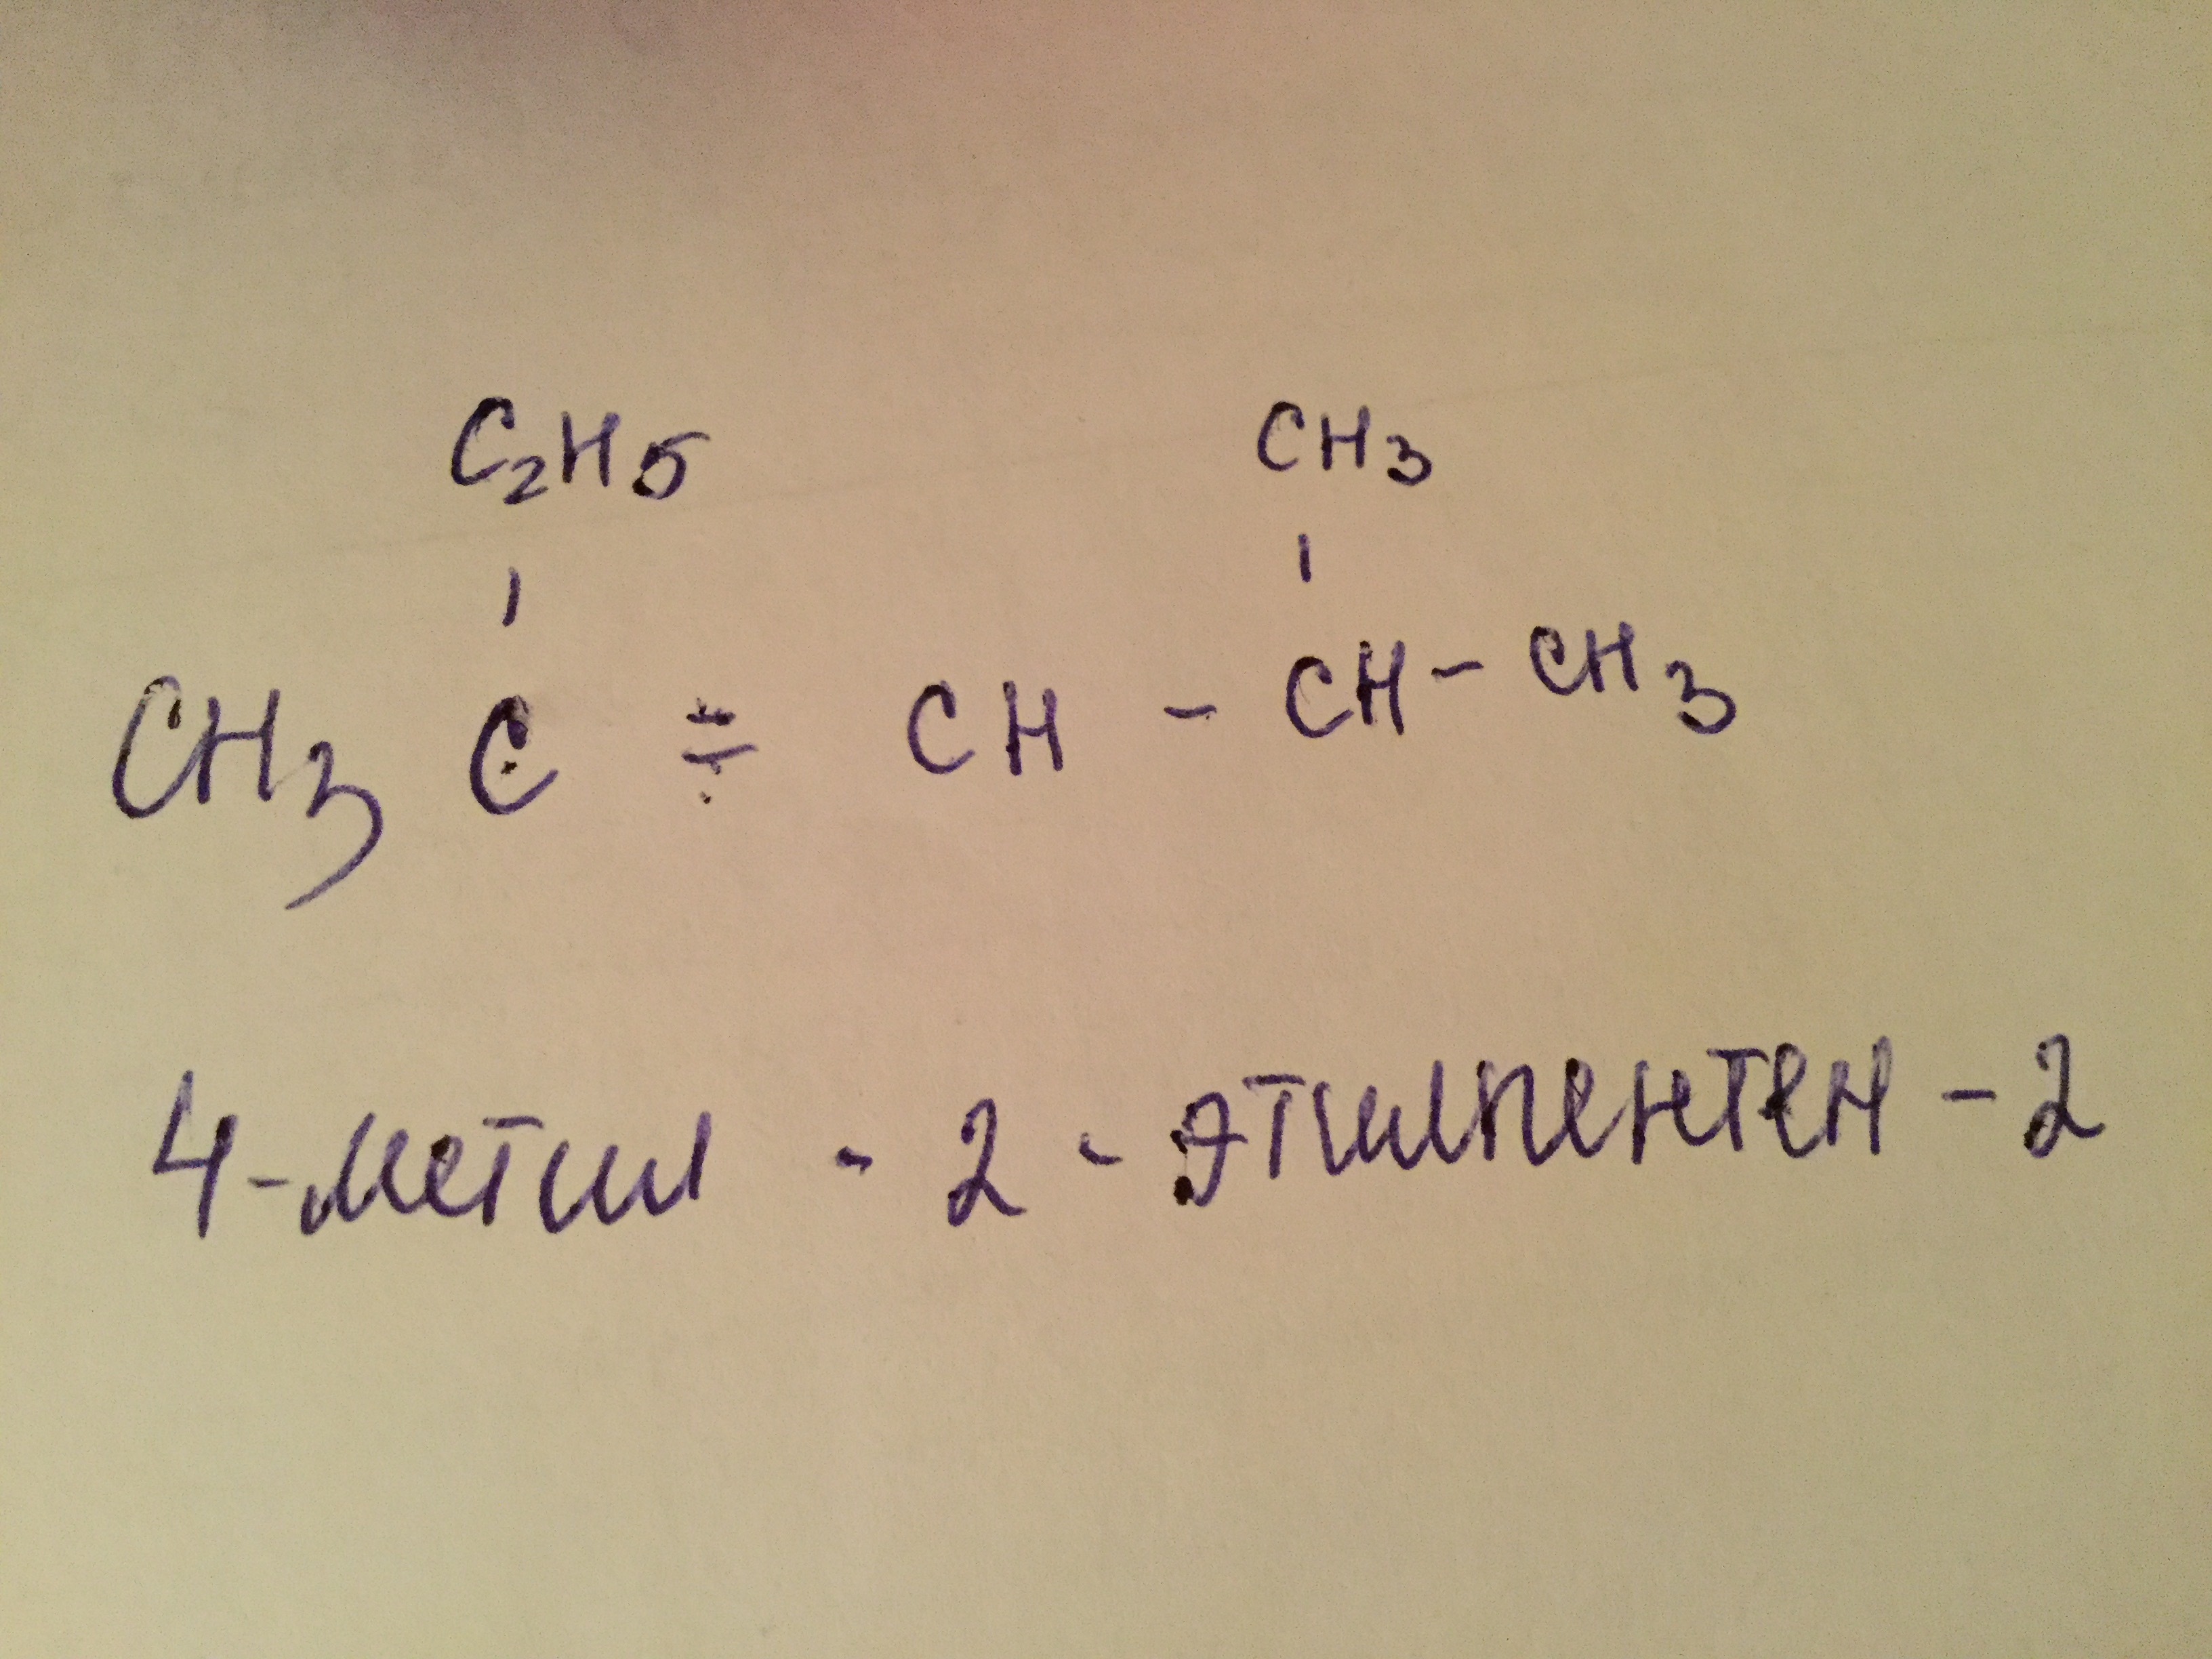 C₂H₅ CH₃
CH₃ C = CH - CH - CH₃
4-метил - 2 - этилпентен - 2